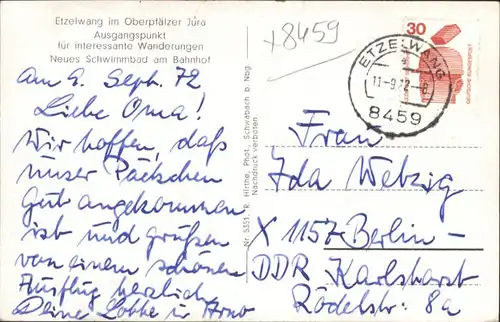 Etzelwang im Oberpfälzer Jura
Ausgangspunkt
für interessante Wanderungen
Neues Schwimmbad am Bahnhof
x8459
am 9. Sept. 72
Liebe Oma!
Wir hoffen, daß
unser Päckchen
gut angekommen
ist und grüßen
von einem schönen
Ausflug herzlich
Deine Lobbe u. Arno
Nr. 5351 R. Hirthe, Phot., Schwabach b. Nbg.
Nachdruck verboten.
30
DEUTSCHE BUNDESPOST
ETZELWANG
11-9.72-8
8459
Frau
Ida Webzig
X 1157 Berlin-
DDR Karlshorst
Rödelstr. 8a